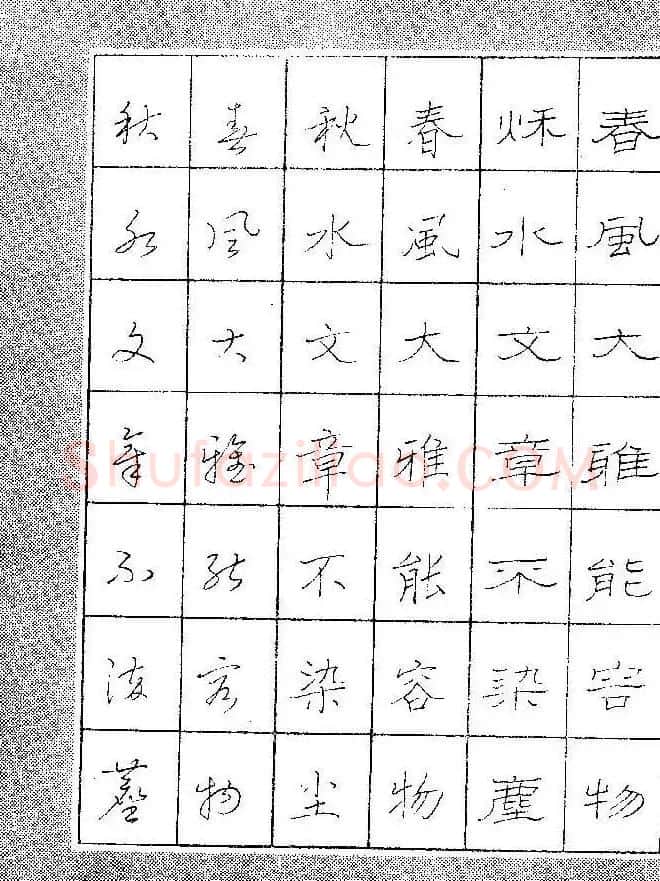 春風大雅能容物
秌水文章不染塵
春風大雅能容物
秋水文章不染尘
春風大雅能容物
秋水文章不染塵
Shufaziliao.COM